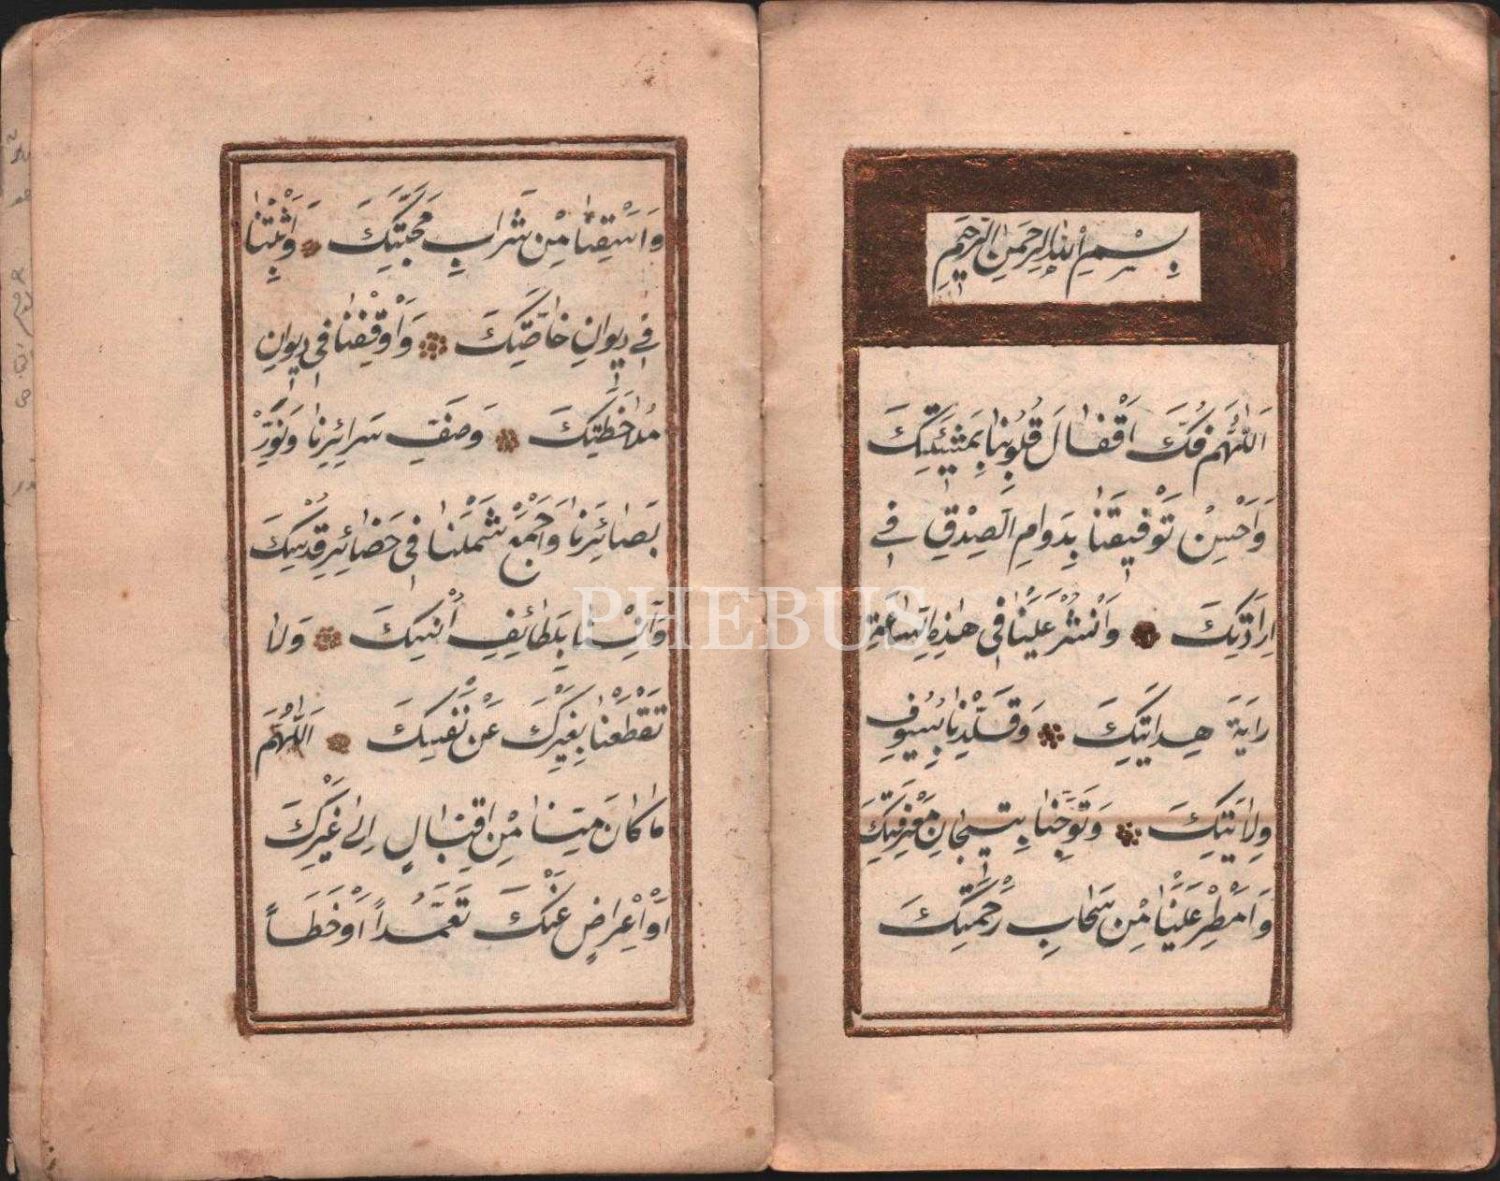 بِسْمِ اللهِ الرَّحْمَنِ الرَّحِيمِ
اَللّٰهُمَّ فُكَّ اَقْفَالَ قُلُوبِنَا بِمَشِيَّتِكَ
وَاَحْسِنْ تَوْفِيقَنَا بِدَوَامِ الصِّدْقِ فِي
اِرَادَتِكَ وَانْشُرْ عَلَيْنَا فِي هٰذِهِ السَّاعَةِ
رَايَةَ هِدَايَتِكَ وَقَلِّدْنَا بِسُيُوفِ
وِلَايَتِكَ وَتَوِّجْنَا بِتِيجَانِ مَعْرِفَتِكَ
وَاَمْطِرْ عَلَيْنَا مِنْ سَحَابِ رَحْمَتِكَ
وَاسْقِنَا مِنْ شَرَابِ مَحَبَّتِكَ وَاَثْبِتْنَا
فِي دِيوَانِ خَاصَّتِكَ وَاَوْقِفْنَا فِي دِيوَانِ
مُلَاحَظَتِكَ وَصَفِّ سَرَائِرِنَا وَنَوِّرْ
بَصَائِرَنَا وَاجْمَعْ شَمْلَنَا فِي حَضَائِرِ قُدْسِكَ
وَآنِسْنَا بِلَطَائِفِ اُنْسِكَ وَلَا
تَقْطَعْنَا بِغَيْرِكَ عَنْ نَفْسِكَ اَللّٰهُمَّ
مَا كَانَ مِنَّا مِنْ اِقْبَالٍ اِلٰى غَيْرِكَ
اَوْ اِعْرَاضٍ عَنْكَ تَعَمُّدًا اَوْ خَطَأً
PHEBUS